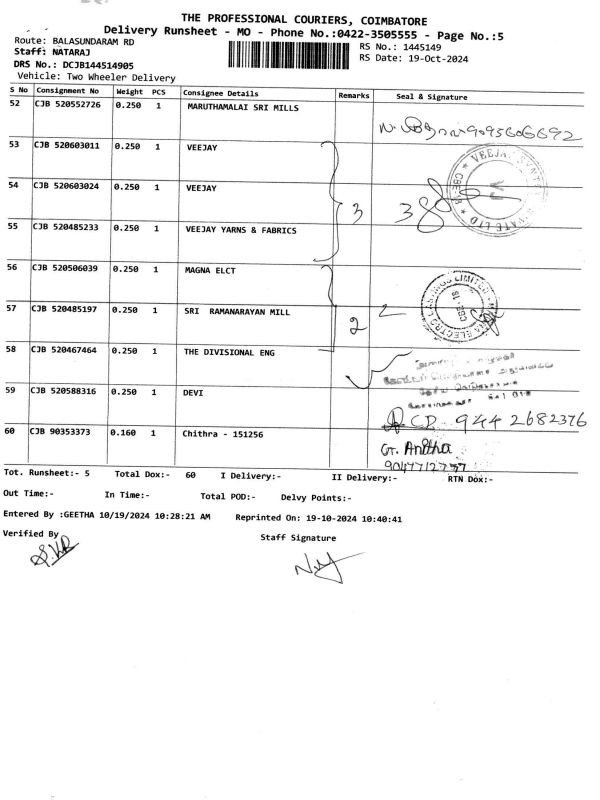 THE PROFESSIONAL COURIERS, COIMBATORE
Delivery Runsheet - MO - Phone No.:0422-3505555 - Page No.:5
Route: BALASUNDARAM RD
RS No.: 1445149
Staff: NATARAJ
RS Date: 19-Oct-2024
DRS No.: DCJB144514905
Vehicle: Two Wheeler Delivery
S No Consignment No Weight PCS Consignee Details Remarks Seal & Signature
52 CJB 520552726 0.250 1 MARUTHAMALAI SRI MILLS
9095606692
53 CJB 520603011 0.250 1 VEEJAY
54 CJB 520603024 0.250 1 VEEJAY
3 38
55 CJB 520485233 0.250 1 VEEJAY YARNS & FABRICS
56 CJB 520506039 0.250 1 MAGNA ELCT
57 CJB 520485197 0.250 1 SRI RAMANARAYAN MILL
2
58 CJB 520467464 0.250 1 THE DIVISIONAL ENG
59 CJB 520588316 0.250 1 DEVI
CD 9442682376
60 CJB 90353373 0.160 1 Chithra - 151256
G. Anitha
Tot. Runsheet:- 5 Total Dox:- 60 I Delivery:- II Delivery:- RTN Dox:-
Out Time:- In Time:- Total POD:- Delvy Points:-
Entered By :GEETHA 10/19/2024 10:28:21 AM Reprinted On: 19-10-2024 10:40:41
Verified By
Staff Signature